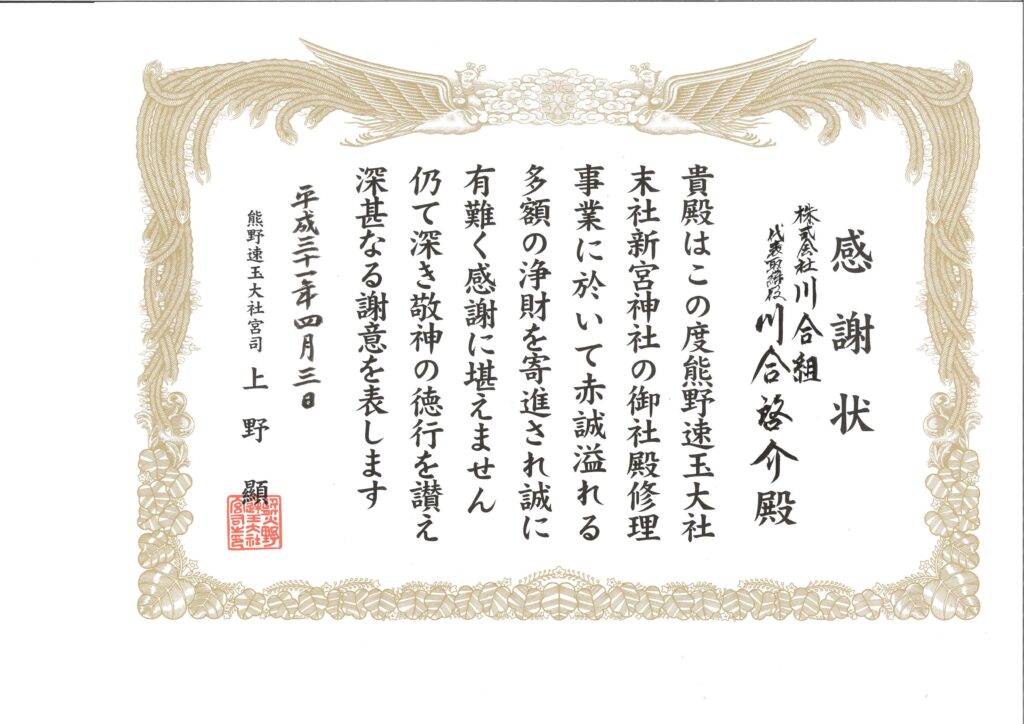 感謝状
株式会社川合組
代表取締役
川合啓介殿
貴殿はこの度熊野速玉大社
末社新宮神社の御社殿修理
事業に於いて赤誠溢れる
多額の浄財を寄進され誠に
有難く感謝に堪えません
仍て深き敬神の徳行を讃え
深甚なる謝意を表します
平成三十一年四月三日
熊野速玉大社宮司 上野 顯